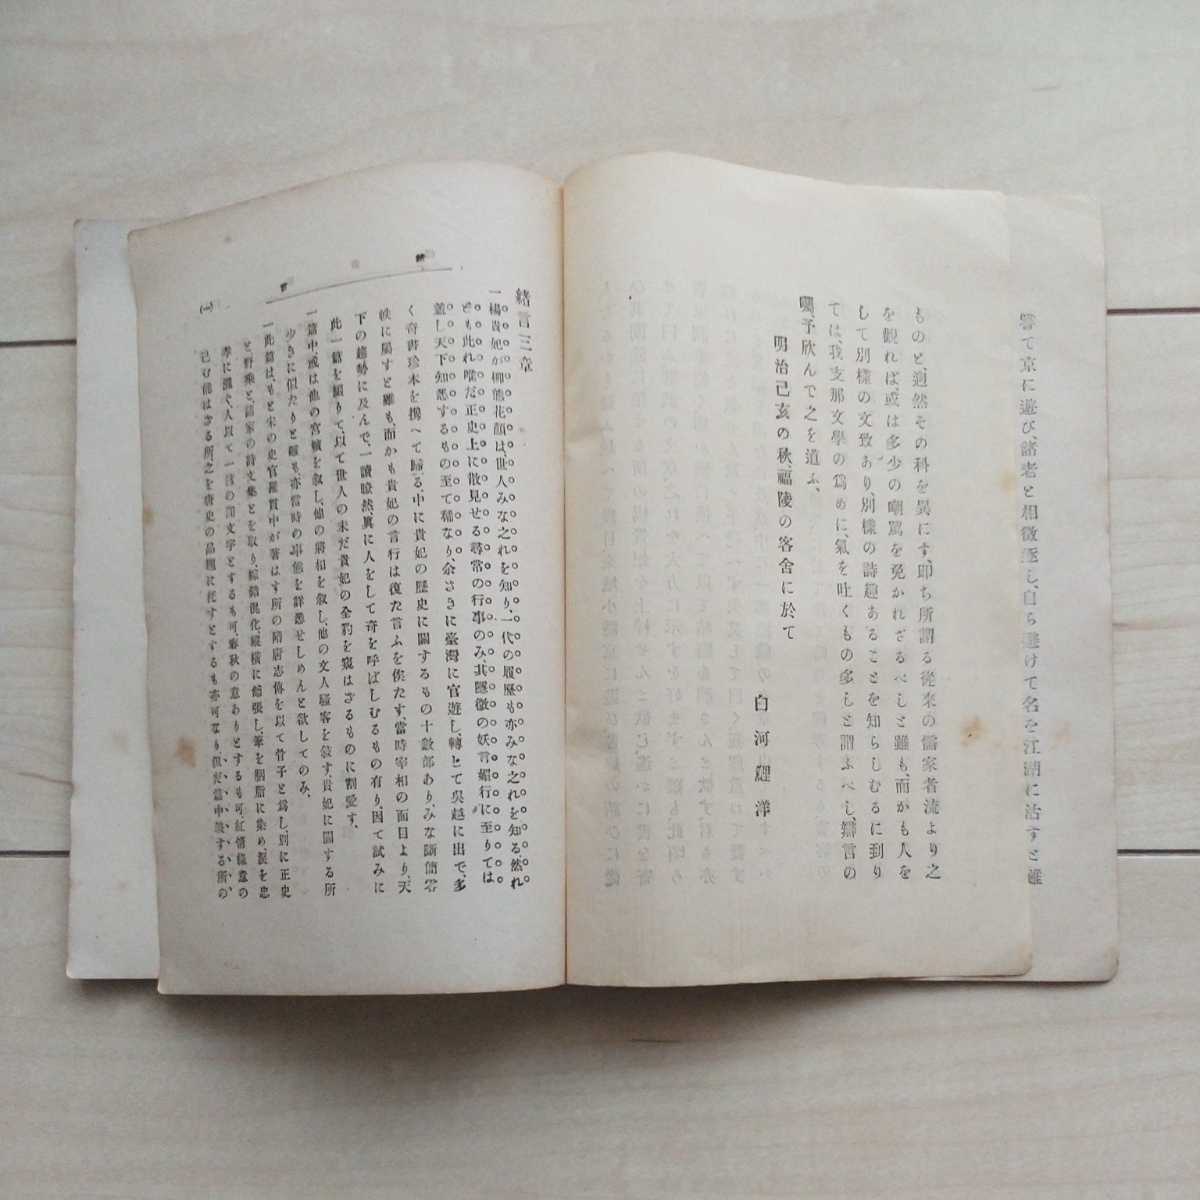 甞て京に遊び、諸老と相徴逐し、自ら避けて名を江湖に沽すと雖
ものと、逈然その科を異にす、即ち所謂る從來の儒家者流より之
を觀れば、或は多少の嘲罵を免かれざるべしと雖も、而かも人を
して別樣の文致あり、別樣の詩趣あることを知らしむるに到り
ては、我支那文學の爲めに、氣を吐くもの多しと謂ふべし、辯言の
囑、予欣んで之を道ふ、
明治己亥の秋、福陵の客舍に於て
白河鯉洋
緒言
緒言三章
一楊貴妃が柳態花顏は、世人みな之れを知り、一代の履歷も亦みな之れを知る、然れ
ども此れ唯だ正史上に散見せる尋常の行事のみ、其隱微の妖言媚行に至りては
蓋し天下知悉するもの至て稀なり、余さきに臺灣に官遊し、轉とて吳越に出で、多
く奇書珍本を携へて歸る、中に貴妃の歷史に關するもの十數部あり、みな斷簡零
帙に屬すと雖も、而かも貴妃の言行は復た言ふを俟たす、當時宰相の面目より、天
下の趨勢に及んで、一讀瞭然、眞に人をして奇を呼ばしむるもの有り、因て試みに
此一篇を編りて以て世人の未だ貴妃の全豹を窺はざるものに割愛す、
一篇中、或は他の宮嬪を叙し、他の將相を叙し、他の文人騷客を叙す、貴妃に關する所
少きに似たりと雖も、亦當時の事態を詳悉せしめんと欲してのみ、
一此篇は、もと宋の史官羅貫中が著はす所の隋唐志傳を以て骨子と爲し、別に正史
と野乘と、諸家の詩文集とを取り、綜錯混化、縱橫に鋪張し、筆を胭脂に染め、涙を忠
孝に濺ぐ、人以て一種の淫文字とするも可、春秋の意ありとするも可、紅情綠意の
已む能はざる所、之を唐史の品題に托すとするも亦可なり、但だ篇中敍する所の
(1)